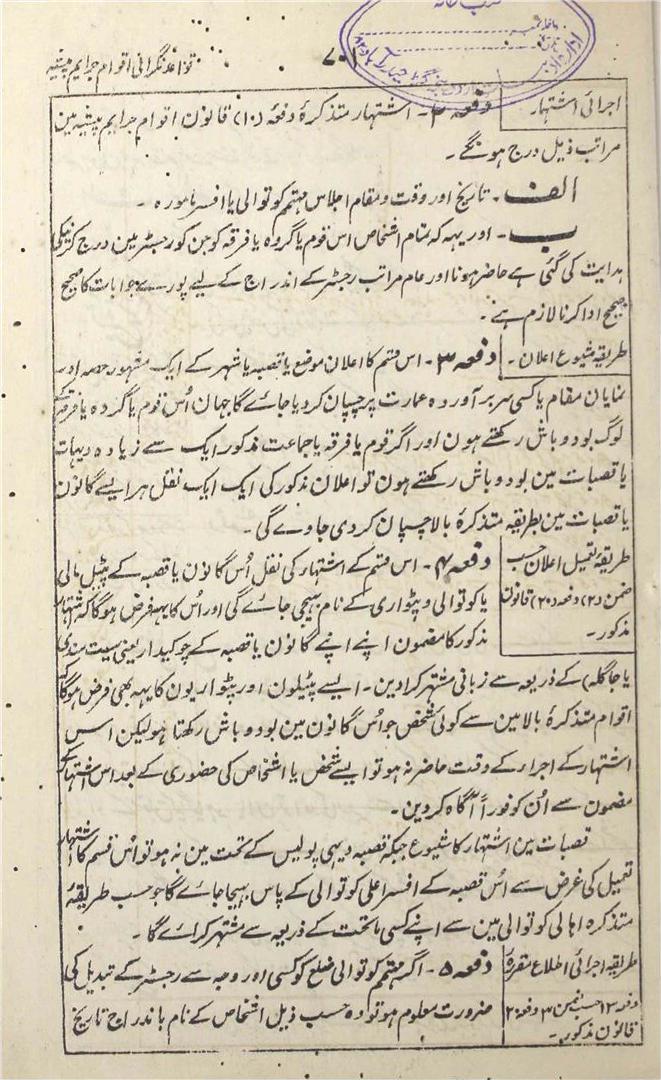 قواعد نگرانی اقوام جرایم پیشہ
۷۰۱
اجرائی اشتہار۔
دفعہ ۲۔ اشتہار متذکرۂ دفعۂ (۱۰) قانون اقوام جرایم پیشہ مین
مراتب ذیل درج ہونگے۔
الف۔ تاریخ اور وقت و مقام اجلاس مہتمم کوتوالی یا افسر مامورہ۔
ب۔ اور یہہ کہ تمام اشخاص اس قوم یا گروہ یا فرقہ کو جن کو رجسٹر مین درج کرنیکی
ہدایت کی گئی ہے حاضر ہونا اور عام مراتب رجسٹر کے اندراج کے لیے پورے جوابات کا صحیح
صحیح ادا کرنا لازم ہے۔
طریقہ شیوع اعلان۔
دفعہ ۳۔ اس قسم کا اعلان موضع یا قصبہ یا شہر کے ایک مشہور حصہ اور
نمایان مقام یا کسی سربرآوردہ عمارت پر چسپان کردیا جائے گا جہان اُس قوم یا گروہ یا فرقہ کے
لوگ بود و باش رکھتے ہون اور اگر قوم یا فرقہ یا جماعت مذکور ایک سے زیادہ دیہات
یا قصبات مین بود و باش رکھتے ہون تو اعلان مذکور کی ایک ایک نقل ہر ایسے گانون
یا قصبات مین بطریقہ متذکرۂ بالا چسپان کردی جاوے گی۔
طریقۂ تعمیل اعلان حسب
ضمن (۲) دفعہ (۲۰) قانون
مذکور۔
دفعہ ۴۔ اس قسم کے اشتہار کی نقل اُس گانون یا قصبہ کے پٹیل مالی
یا کوتوالی و پٹواری کے نام بہیجی جائے گی اور اُس کا یہہ فرض ہوگا کہ اشتہار
مذکور کا مضمون اپنے اپنے گانون یا قصبہ کے چوکیدار یعنی سیت سندی
یا جاگلہ) کے ذریعہ سے زبانی مشتہر کرادین۔ ایسے پٹیلون اور پٹواریون کا یہہ بھی فرض ہوگا کہ
اقوام متذکرۂ بالا مین سے کوئی شخص جو اُس گانون مین بود و باش رکھتا ہو لیکن اس
اشتہار کے اجراء کے وقت حاضر نہ ہو تو ایسے شخص یا اشخاص کی حضوری کے بعد اس اشتہار کے
مضمون سے اُن کو فوراً آگاہ کردین۔
قصبات مین اشتہار کا شیوع جبکہ قصبہ دیہی پولیس کے تحت مین نہ ہو تو اس قسم کا اشتہار
تعمیل کی غرض سے اُس قصبہ کے افسر اعلی کوتوالی کے پاس بہیجا جائے گا جو حسب طریقۂ
متذکرہ اہالی کوتوالی مین سے اپنے کسی ماتحت کے ذریعہ سے مشتہر کرائے گا۔
طریقہ اجرائی اطلاع مقررۂ
دفعہ ۱۲ حسب ضمن ۳ دفعہ ۲۰
قانون مذکور۔
دفعہ ۵۔ اگر مہتمم کوتوالی ضلع کو کسی اور وجہ سے رجسٹر کے تبدیل کی
ضرورت معلوم ہو تو وہ حسب ذیل اشخاص کے نام باندراج تاریخ